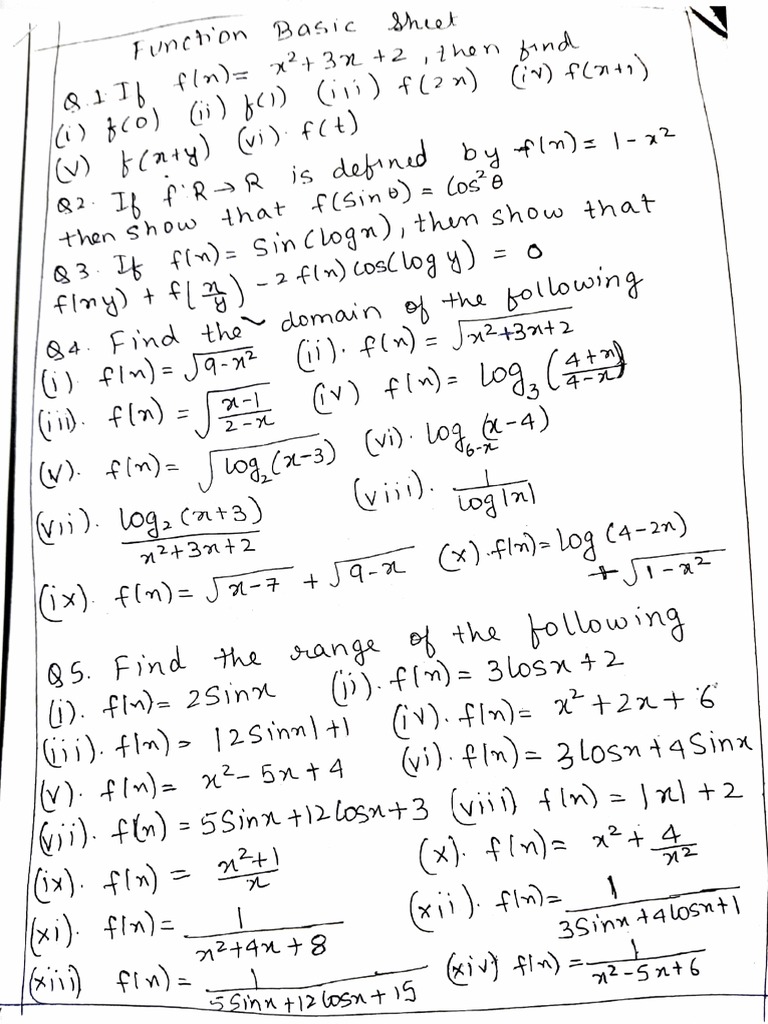 Function Basic Sheet
Q.1 If f(x) = x² + 3x + 2, then find
(i) f(0) (ii) f(1) (iii) f(2x) (iv) f(x+1)
(v) f(x+y) (vi). f(t)
Q2. If f:R→R is defined by f(x) = 1 - x²
then show that f(sinθ) = Cos²θ
Q3. If f(x) = Sin(logx), then show that
f(xy) + f(x/y) - 2f(x)cos(log y) = 0
Q4. Find the domain of the following
(i). f(x) = √(9-x²) (ii). f(x) = √(x²+3x+2)
(iii). f(x) = √((x-1)/(2-x)) (iv) f(x) = log₃((4+x)/(4-x))
(v). f(x) = √(log₂(x-3)) (vi). log₆₋ₓ(x-4)
(vii). log₂(x+3)/(x²+3x+2) (viii). 1/log|x|
(ix). f(x) = √(x-7) + √(9-x) (x). f(x) = log(4-2x) + √(1-x²)
Q5. Find the range of the following
(i). f(x) = 2Sinx (ii). f(x) = 3Cosx + 2
(iii). f(x) = |2Sinx| + 1 (iv). f(x) = x² + 2x + 6
(v). f(x) = x² - 5x + 4 (vi). f(x) = 3Cosx + 4Sinx
(vii). f(x) = 5Sinx + 12Cosx + 3 (viii) f(x) = |x| + 2
(ix). f(x) = (x²+1)/x (x). f(x) = x² + 4/x²
(xi). f(x) = 1/(x²+4x+8) (xii). f(x) = 1/(3Sinx+4Cosx+1)
(xiii) f(x) = 1/(5Sinx+12Cosx+15) (xiv) f(x) = 1/(x²-5x+6)